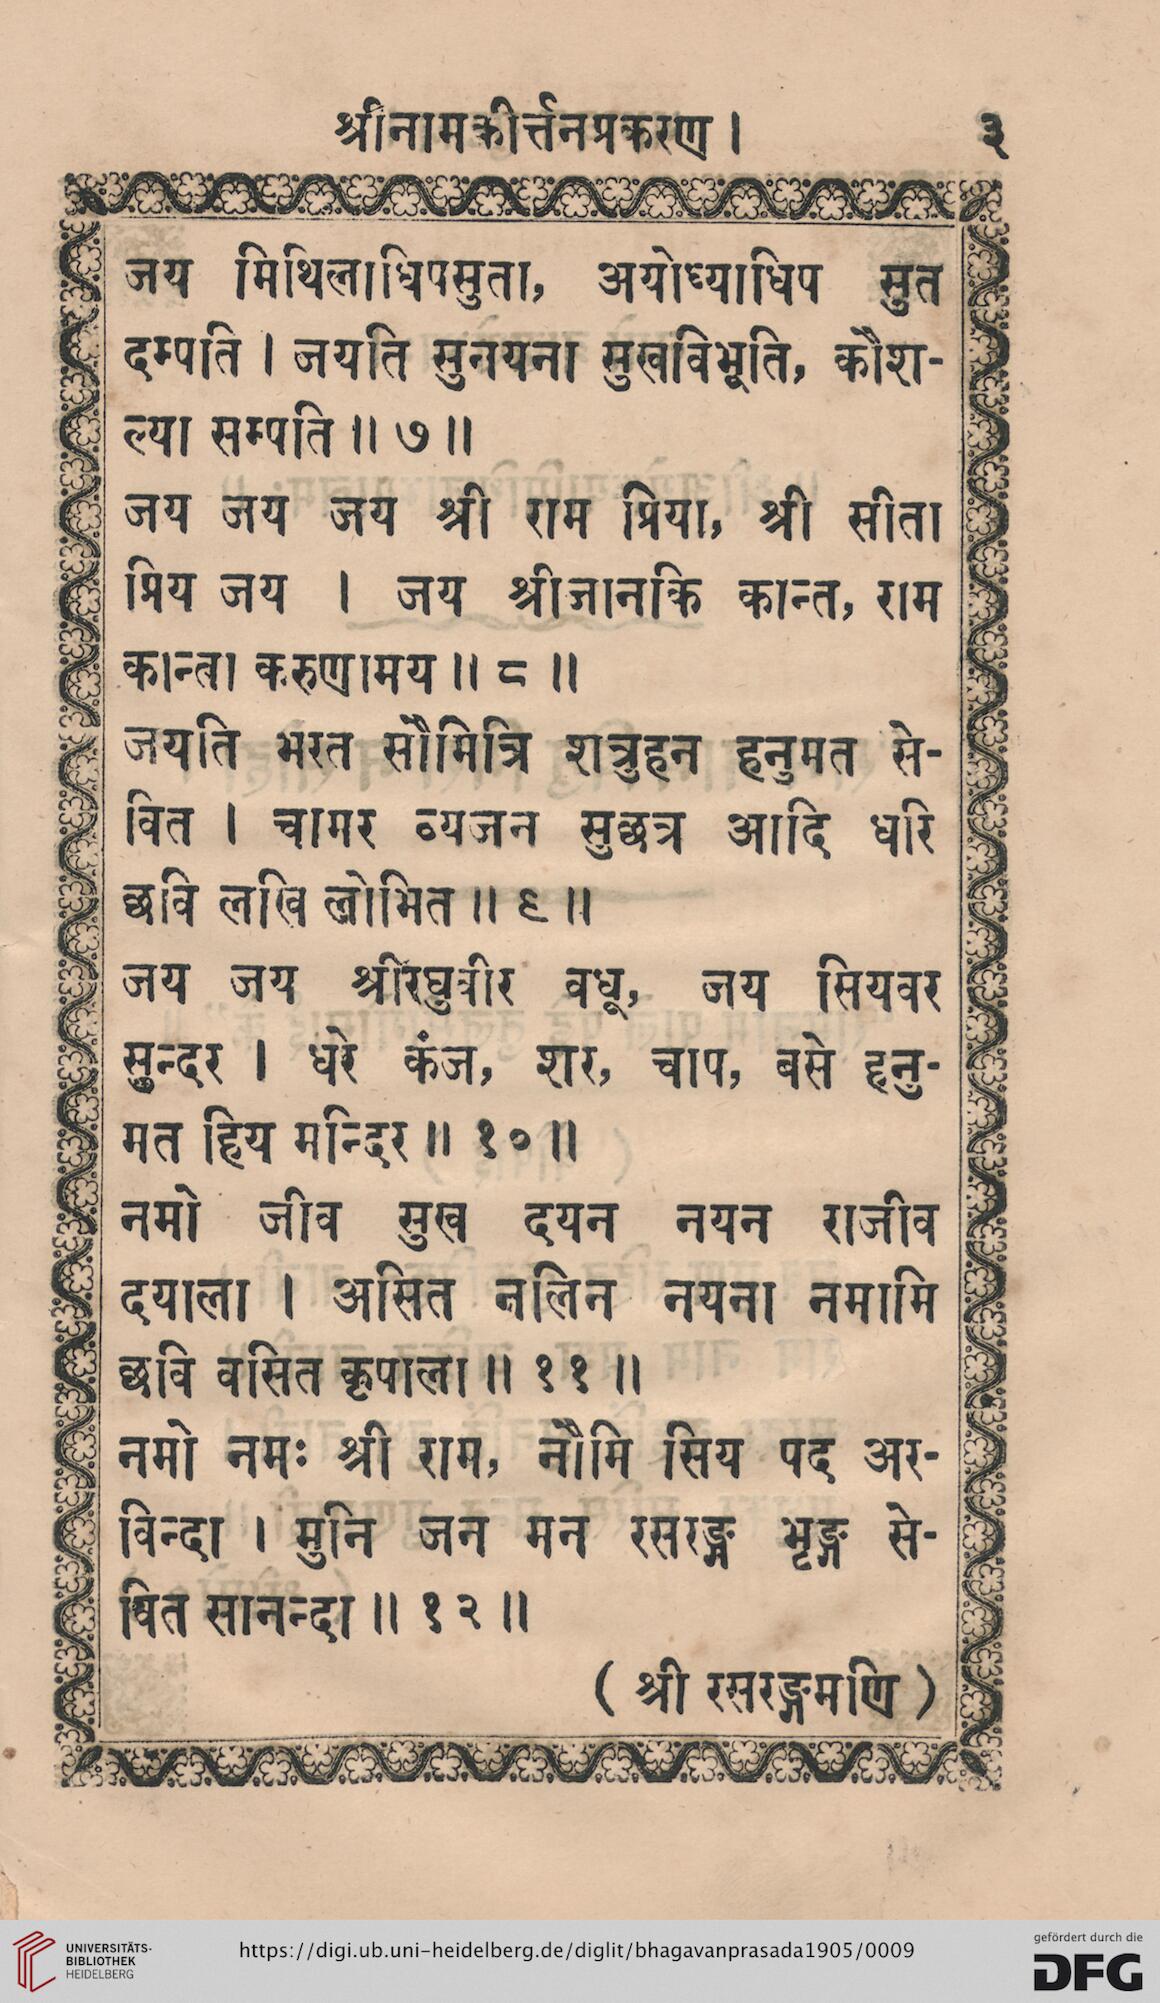 श्रीनामकीर्त्तनप्रकरण । ३
जय मिथिलाधिपसुता, अयोध्याधिप सुत
दम्पति । जयति सुनयना सुखविभूति, कौश-
ल्या सम्पति ॥ ७ ॥
जय जय जय श्री राम प्रिया, श्री सीता
प्रिय जय । जय श्रीजानकि कान्त, राम
कान्ता करुणामय ॥ ८ ॥
जयति भरत सौमित्रि शत्रुहन हनुमत से-
वित । चामर व्यजन सुछत्र आदि धरि
छवि लखि लोभित ॥ ९ ॥
जय जय श्रीरघुवीर वधू, जय सियवर
सुन्दर । धरे कंज, शर, चाप, बसे हनु-
मत हिय मन्दिर ॥ १० ॥
नमो जीव सुख दयन नयन राजीव
दयाला । असित नलिन नयना नमामि
छवि वसित कृपाला ॥ ११ ॥
नमो नमः श्री राम, नौमि सिय पद अर-
विन्दा । मुनि जन मन रसरङ्ग भृङ्ग से-
वित सानन्दा ॥ १२ ॥
( श्री रसरङ्गमणि )
UNIVERSITÄTS-
BIBLIOTHEK
HEIDELBERG
https://digi.ub.uni-heidelberg.de/diglit/bhagavanprasada1905/0009
gefördert durch die
DFG